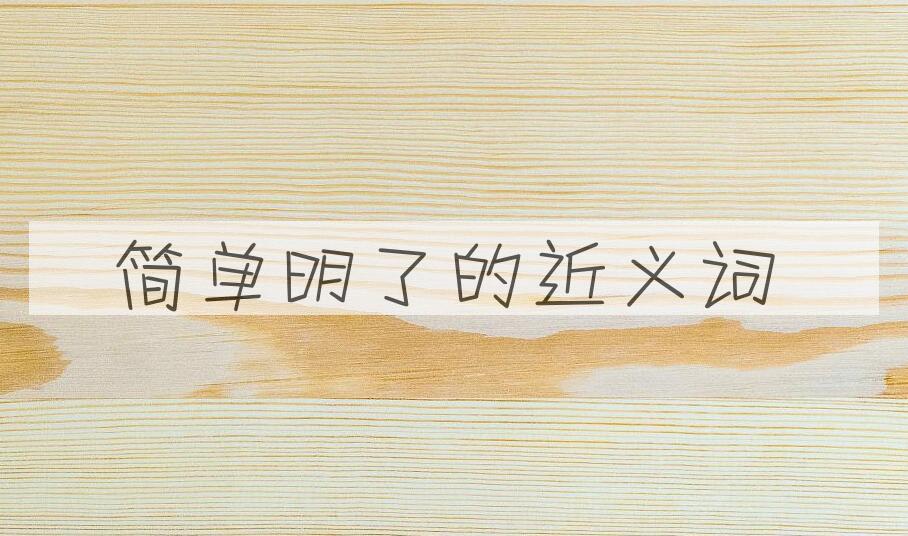 简单明了的近义词